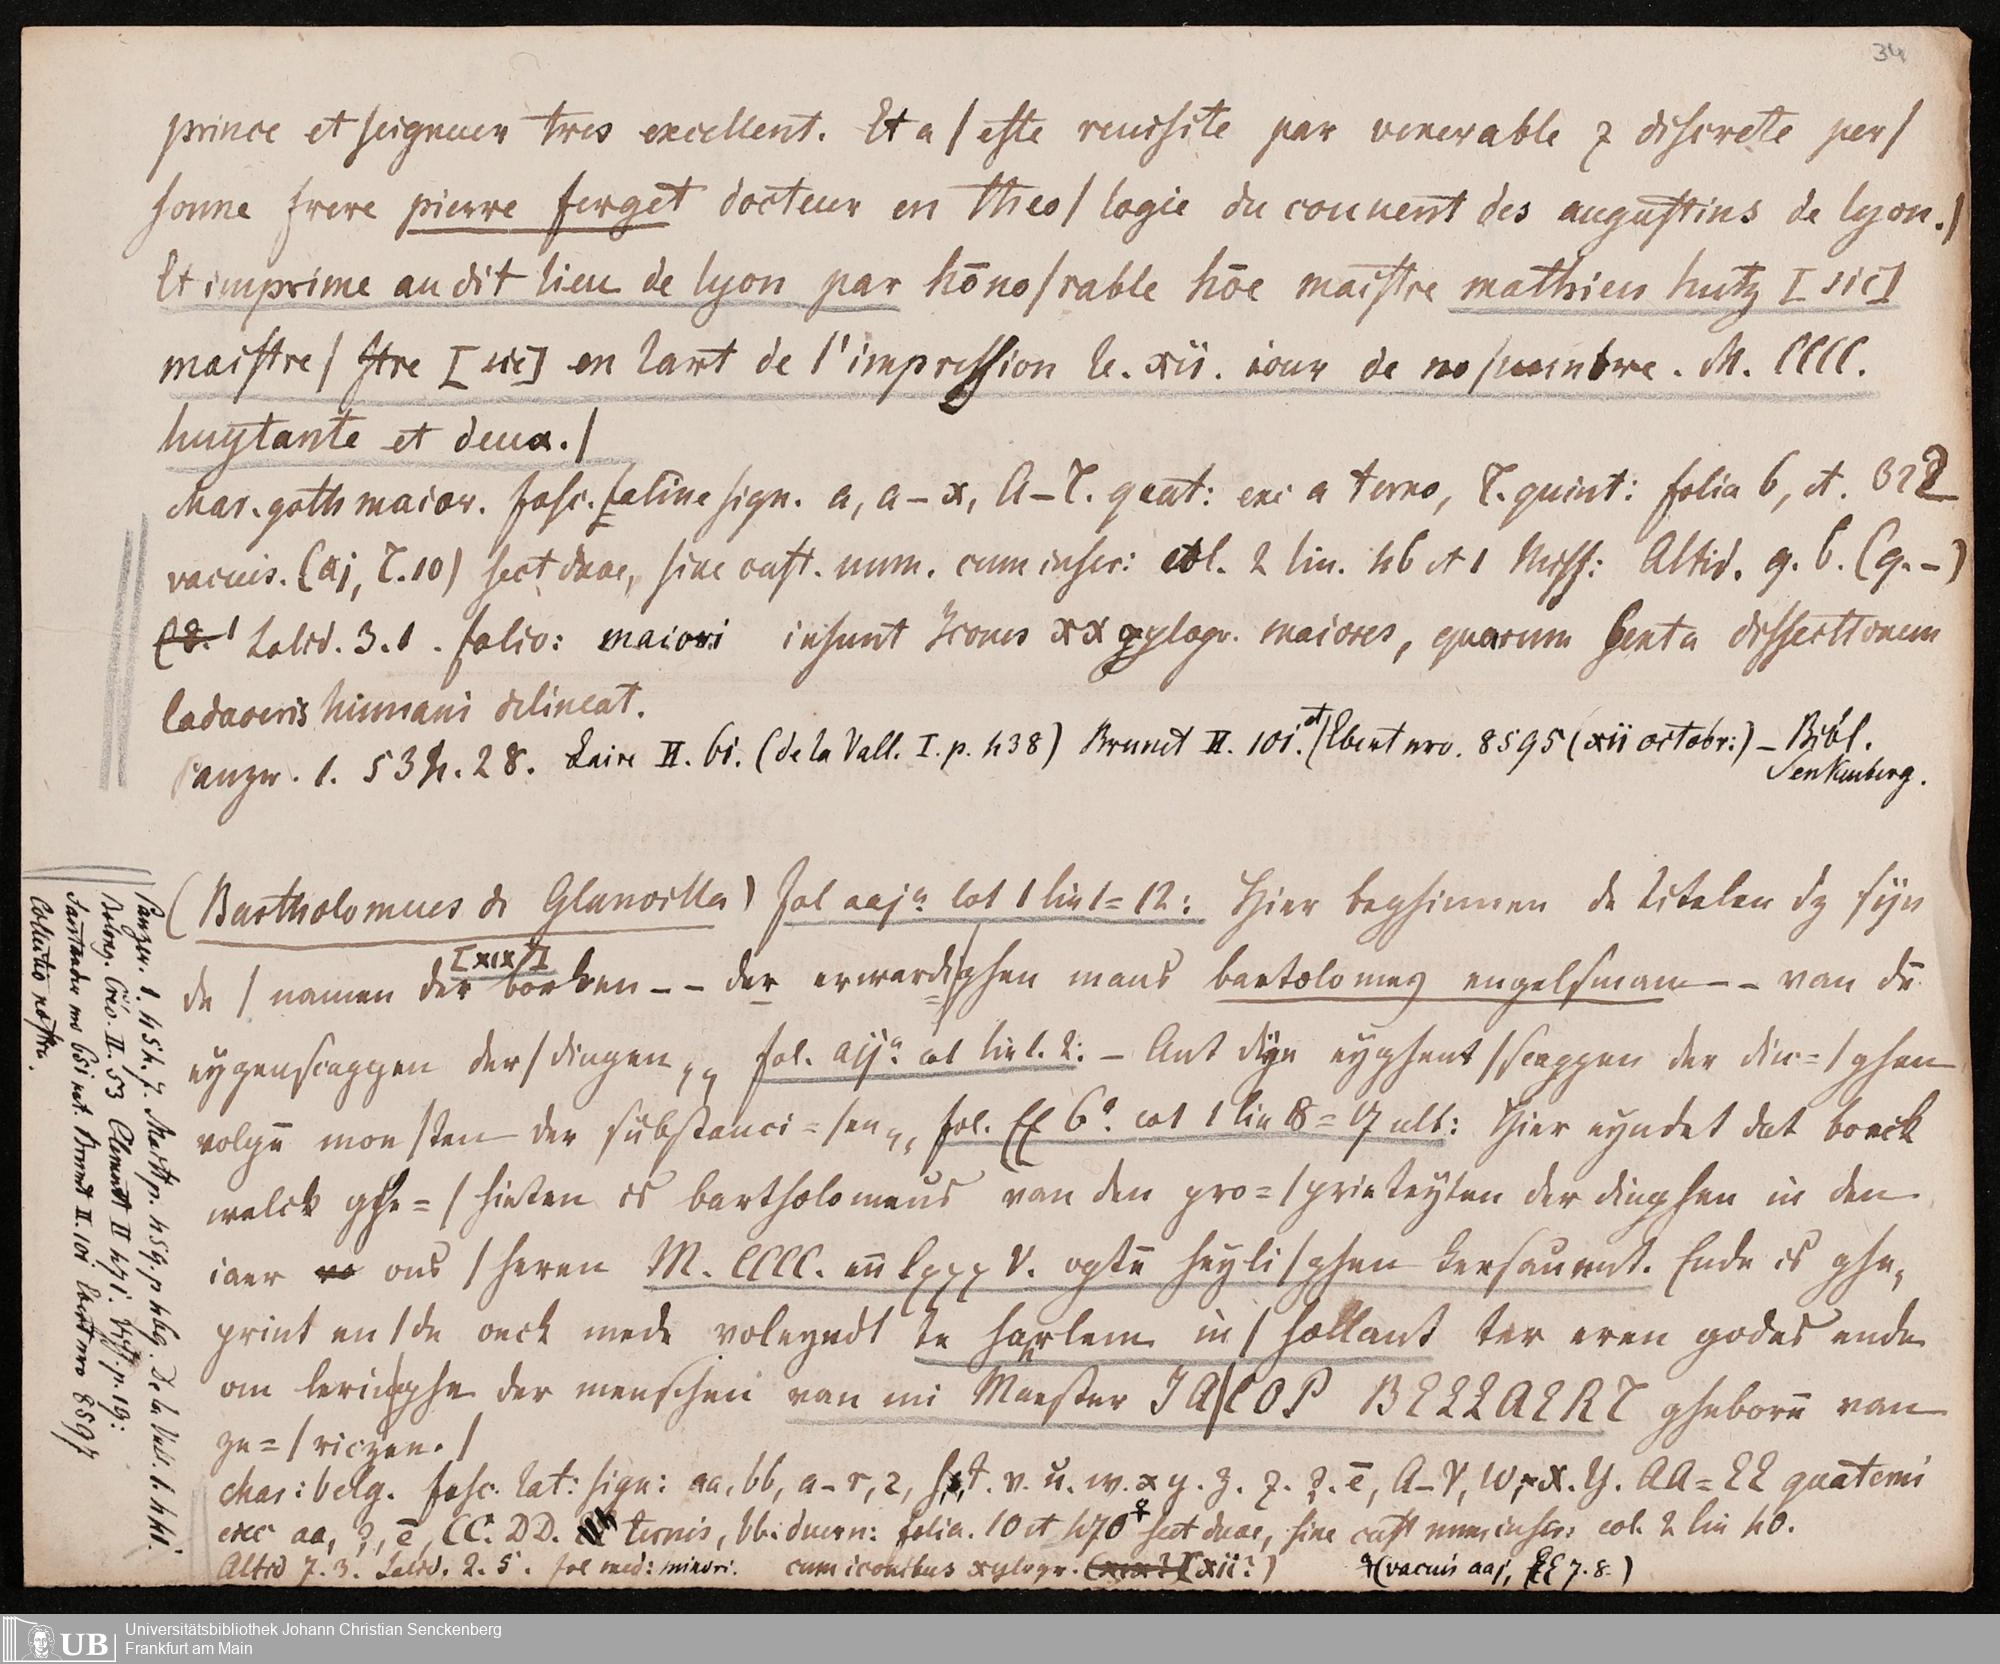 34
prince et seigneur tres excellent. Et a / este reuisite par venerable z discrete per/
sonne frere pierre ferget docteur en theo / logie du conuent des augustins de lyon./
Et imprime au dit lieu de lyon par hōno/rable hōe maistre mathieu hutz [sic]
maistre / stre [sic] en lart de l'impression le. xii. iour de no/uembre. M. CCCC.
huytante et deux./
char. goth maior. sign. a, a-x, A-T. quat: exc a terno, T. quint: folia 6, et. 322
vacuis. (aj, T.10) sect duae, sine cust. num. cum inscr: col. 2 lin. 46 et 1 Miss: Altid. 9. 6. (9.-)
Latid. 3.1. folio: maiori insunt Icones xx xylogr. maiores, quarum sexta dissectionem
Cadaveris humani delineat.
Panzer. 1. 534. 28. Laire II. 61. (de la Vall. I. p. 438) Brunet II. 101. et / Ebert nro. 8595 (xii octobr:) – Bibl.
Senkenberg.
(Bartholomeus de Glanvilla) fol aaja col 1 lin 1=12: Hier beghinnen de titelen dz syn
de / namen der [xix] boeken -- der erwardi/ghen mans bartolomeus engelsman -- van dē
eygenscappen der / dingen,, fol. aija col lin 1. 2: – Ant dyn eyghent / scappen der din=/ghen
volgē moe/sten der substanci=/en,, fol. 6a. col 1 lin 8=17 ult: Hier eyndet dat boeck
welck ghe=/hieten is bartholomeus van den pro=/prieteyten der dinghen in den
iaer ons / heren M. CCCC. eñ lxxxV. opten heyli/ghen kersauent. Ende is ghe,
print en/de oeck mede voleyndt te haerlem in / hollant ter eren godes ende
om leringhe der menschen van mi Meester JA/COP BELLAERT gheborē van
ze=/riczee./
char: belg. sign: aa, bb, a-r, z, s, t. v. u. w. x y. z. A-V, W, X. Y. AA=EE quaterni
exc aa, CC. DD. ternis, bb. duern: folia. 10 et 470 sect duae, sine cust num inscr: col. 2 lin 40.
Altid 7. 3. Latid. 2. 5. fol med: minori. cum iconibus xylogr. (xii?) (vacuis aaj, EE 7. 8.)
Panzer. 1. 454. 7. Maitt p. 459. p 469. De la Val. 1. 441.
II. 53 Clement II 471. p. 19:
Santander no 651 Brunet II. 101 Ebert nro 8597
Collectio nostra.
UB
Universitätsbibliothek Johann Christian Senckenberg
Frankfurt am Main